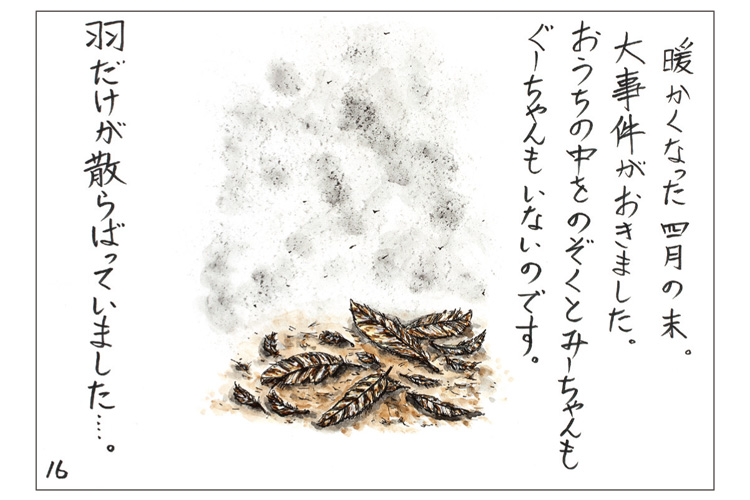 暖かくなった四月の末。
大事件がおきました。
おうちの中をのぞくとみーちゃんも
ぐーちゃんもいないのです。
羽だけが散らばっていました…。
16